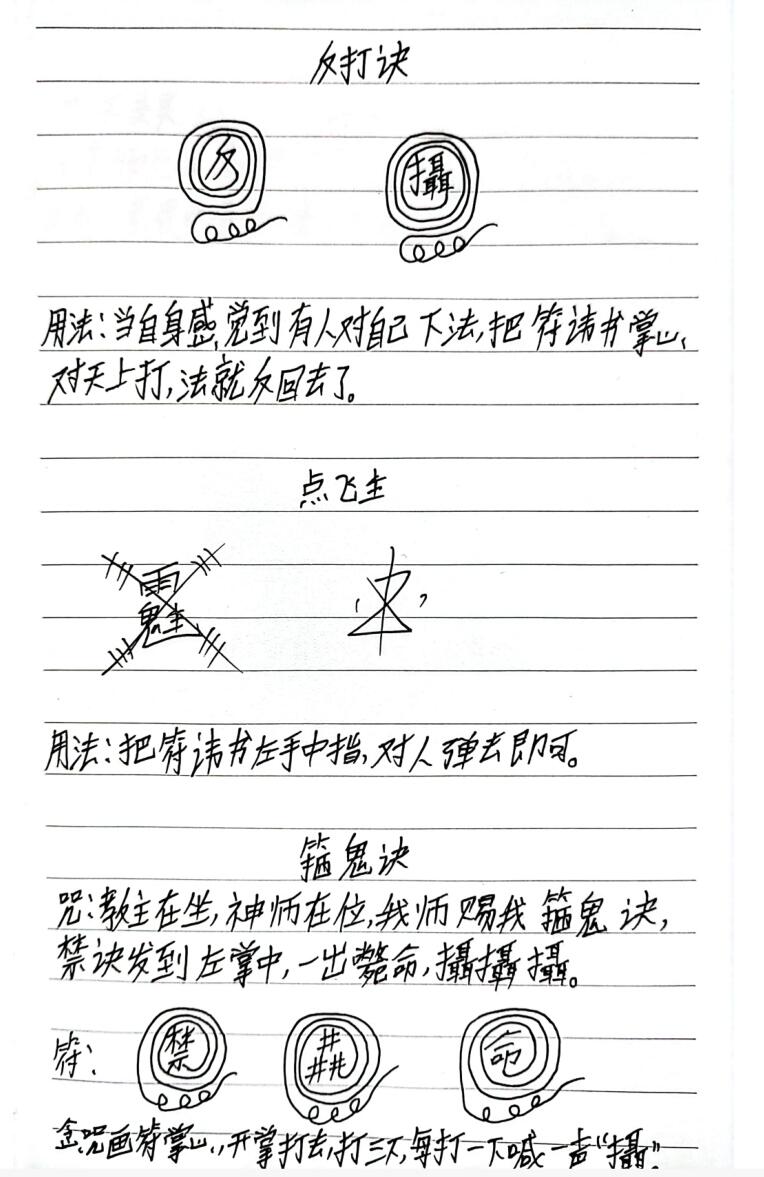 反打诀
反 攝
用法:当自身感觉到有人对自己下法,把符讳书掌心,
对天上打,法就反回去了。
点飞
雨
用法:把符讳书左手中指,对人弹去即可。
箍鬼诀
咒:教主在坐,神师在位,我师赐我箍鬼诀,
禁诀发到左掌中,一出毙命,攝攝攝。
符: 禁 井井井 命
念咒画符掌心,开掌打去,打三下,每打一下喊一声“攝”。